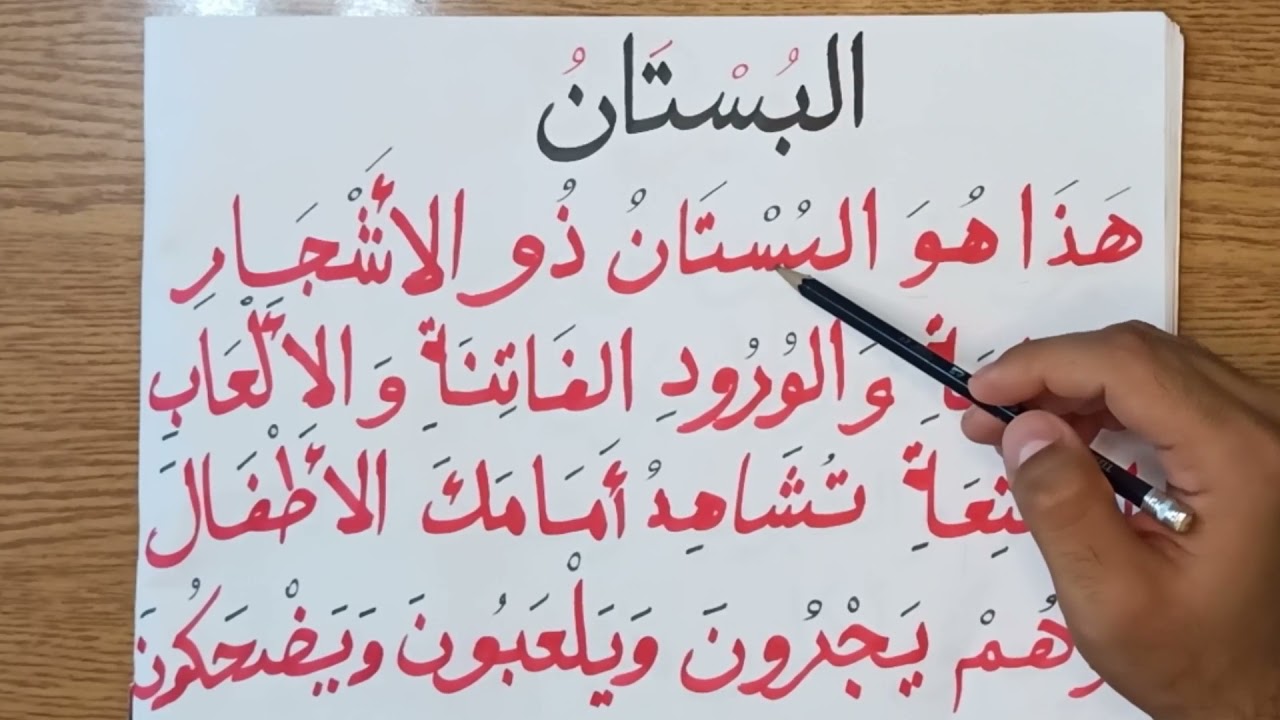 البُسْتَانُ
هَذَا هُوَ البُسْتَانُ ذُو الأَشْجَارِ
وَالوُرُودِ الفَاتِنَةِ وَالأَلْعَابِ
تُشَاهِدُ أَمَامَكَ الأَطْفَالَ
وَهُمْ يَجْرُونَ وَيَلْعَبُونَ وَيَضْحَكُونَ